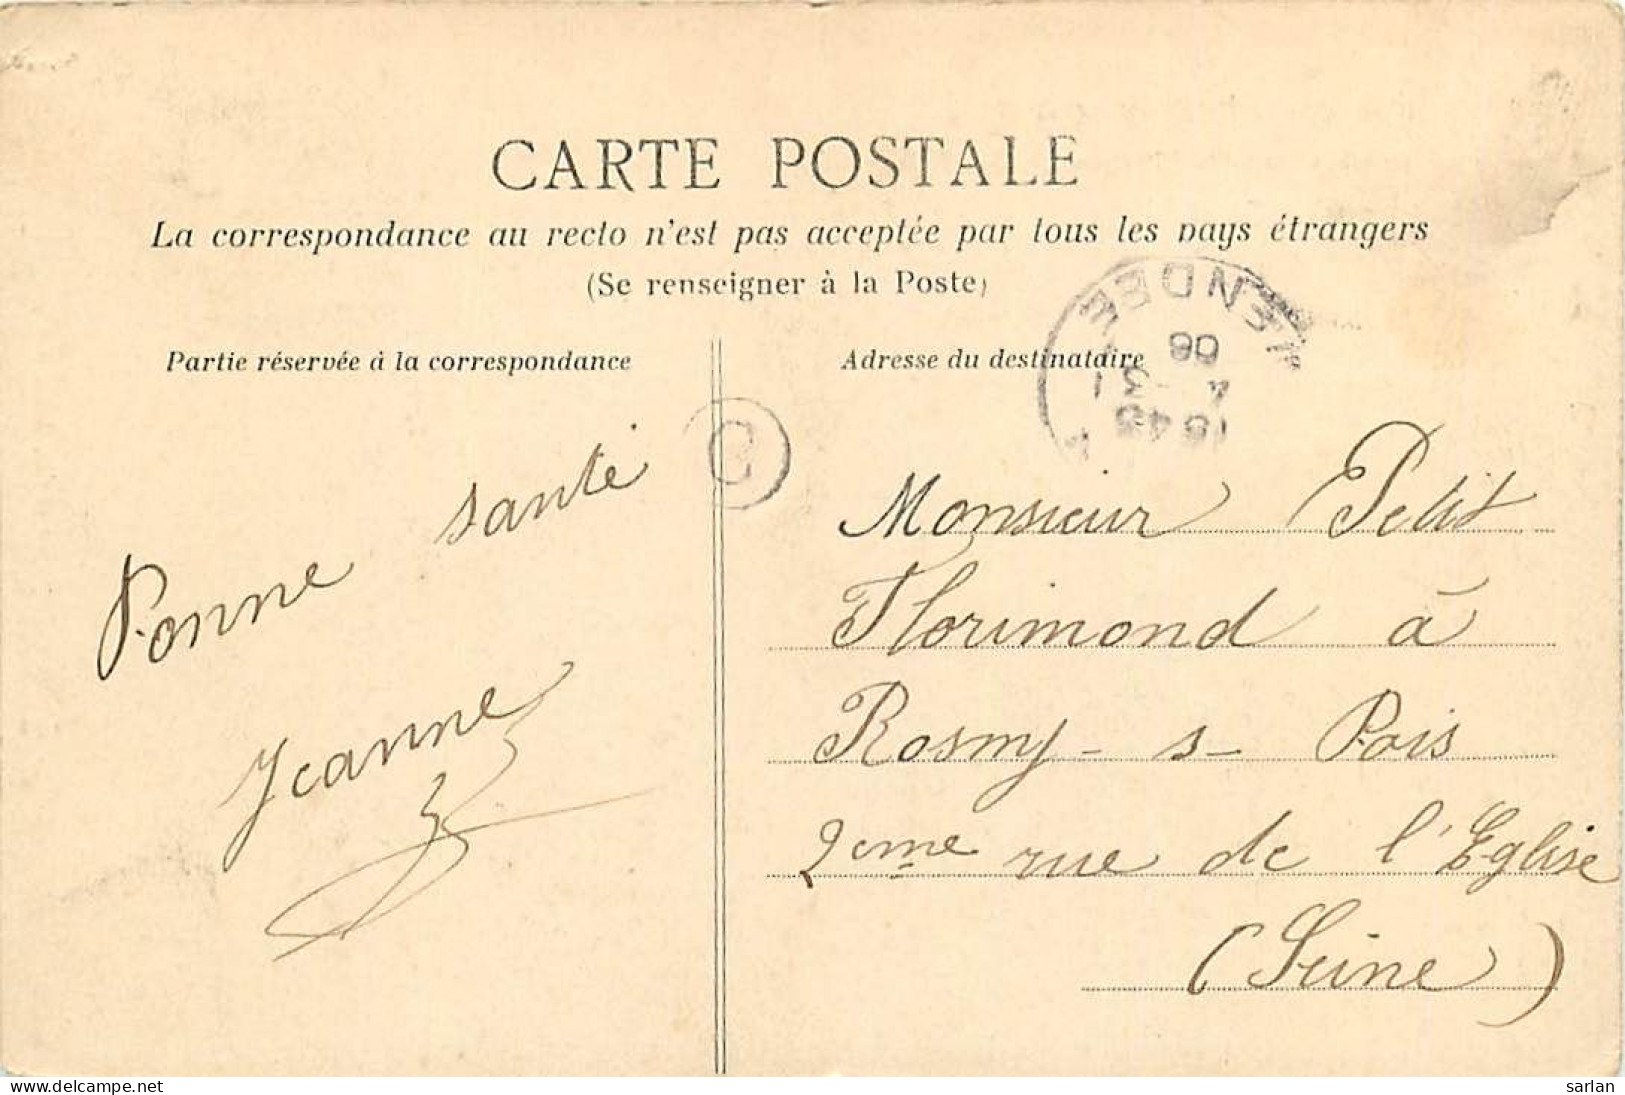 CARTE POSTALE
La correspondance au recto n'est pas acceptée par tous les pays étrangers
(Se renseigner à la Poste)
Partie réservée à la correspondance
Bonne santé
Jeanne
Adresse du destinataire
VENDEE
06
4 - 3
1845
Monsieur Petit
Florimond à
Rosny - s - Bois
2eme rue de l'Eglise
(Seine)
delcampe.net
sarlan